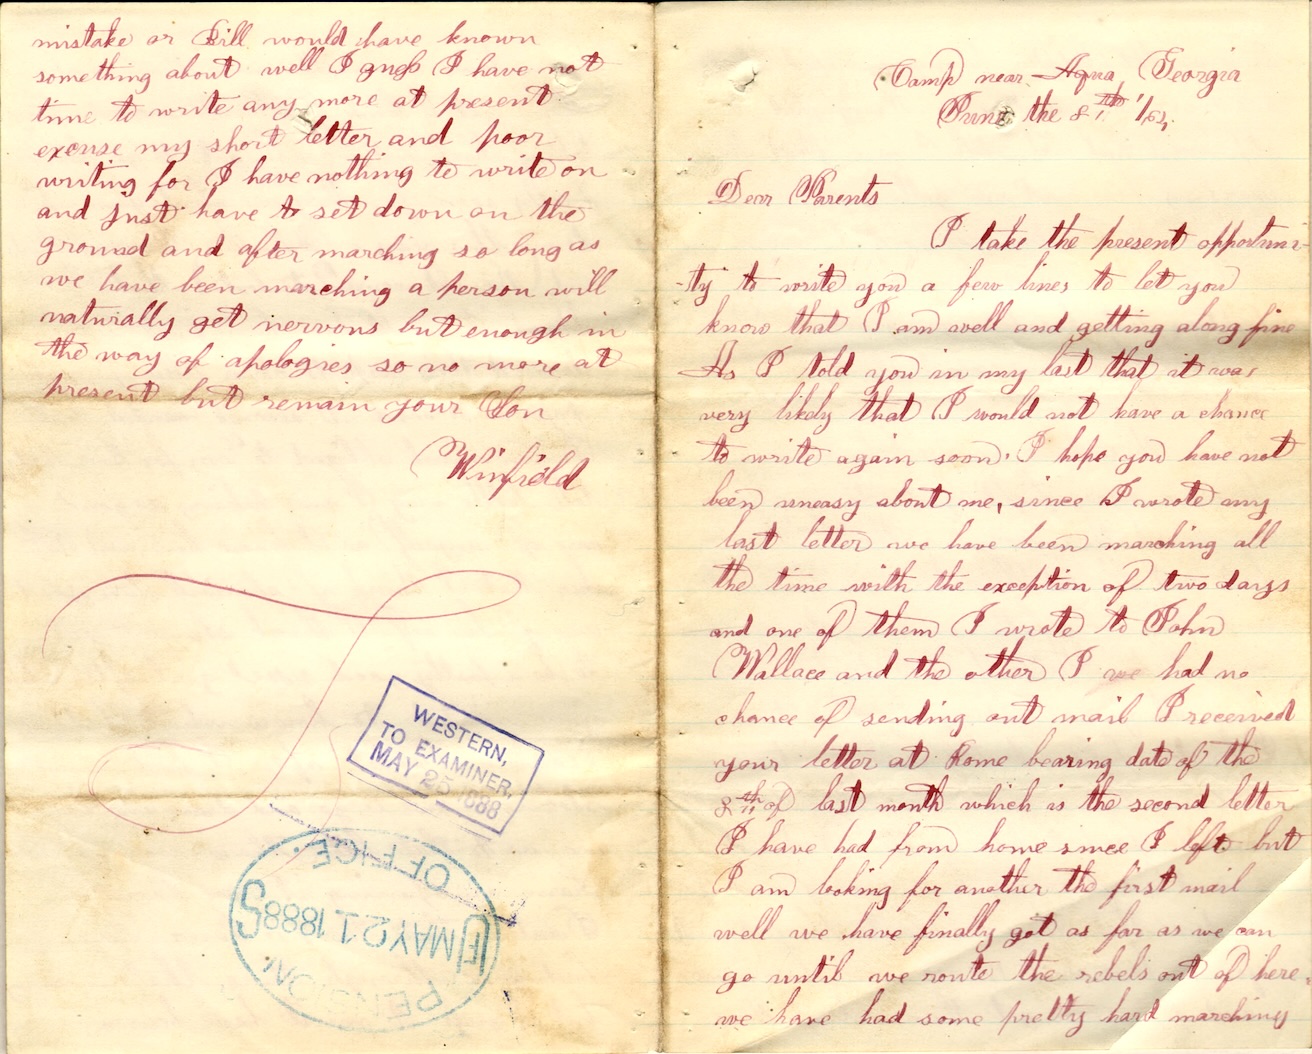 mistake or Bill would have known
something about well I guess I have not
time to write any more at present
excuse my short letter and poor
writing for I have nothing to write on
and just have to set down on the
ground and after marching so long as
we have been marching a person will
naturally get nervous but enough in
the way of apologies so no more at
present but remain your Son
Winfield
WESTERN,
TO EXAMINER,
MAY 25 1888
U.S. PENSION OFFICE.
MAY 21 1888
Camp near Aqua, Georgia
June the 8th /64
Dear Parents
I take the present opportuni-
-ty to write you a few lines to let you
know that I am well and getting along fine
As I told you in my last that it was
very likely that I would not have a chance
to write again soon. I hope you have not
been uneasy about me, since I wrote my
last letter we have been marching all
the time with the exception of two days
and one of them I wrote to John
Wallace and the other I we had no
chance of sending out mail I received
your letter at Rome bearing date of the
8th of last month which is the second letter
I have had from home since I left but
I am looking for another the first mail
well we have finally got as far as we can
go until we route the rebels out of here.
we have had some pretty hard marching